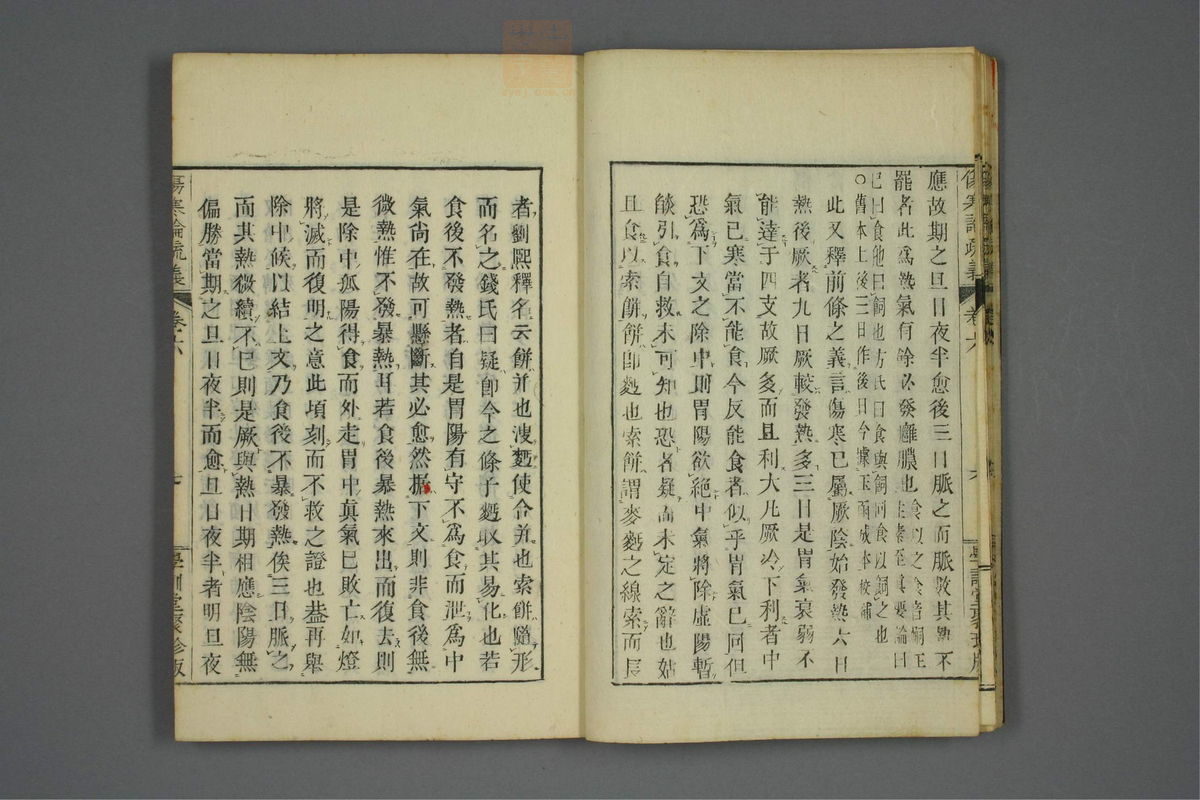 應故期之旦日夜半愈後三日脈之而脈數其熱不
罷者此爲熱氣有餘必發癰膿也
食以之食音嗣王
冰曰
至眞要論曰
已曰食他曰飼也方氏曰食與飼同食以飼之也
○舊本上後三日作後日今據玉函成本校補
此又釋前條之義言傷寒已屬厥陰始發熱六日
熱後厥者九日厥較發熱多三日是胃氣衰弱不
能達于四支故厥多而且利大凡厥冷下利者中
氣已寒當不能食今反能食者似乎胃氣已回但
恐爲下文之除中則胃陽欲絕中氣將除虛陽暫
餤引食自救未可知也恐者疑而未定之辭也姑
且食以索餅餅即麪也索餅謂麥麪之線索而長
傷寒論疏義
卷六
學訓堂聚珍版
者劉熙釋名云餅并也溲麪使合并也索餅隨形
而名之錢氏曰疑即今之條子麪取其易化也若
食後不發熱者自是胃陽有守不爲食而泄爲中
氣尚在故可懸斷其必愈然據下文則非食後無
微熱惟不發暴熱耳若食後暴熱來出而復去則
是除中孤陽得食而外走胃中眞氣已敗亡如燈
將滅而復明之意此頃刻而不救之證也葢再舉
除中候以結上文乃食後不暴發熱俟三日脈之
而其熱微續不已則是厥與熱日期相應陰陽無
偏勝當期之旦日夜半而愈旦日夜半者明旦夜
傷寒論疏義
卷六
七
學訓堂聚珍版